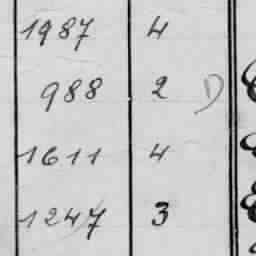 1987 4
988 2 D
1611 4
1247 3